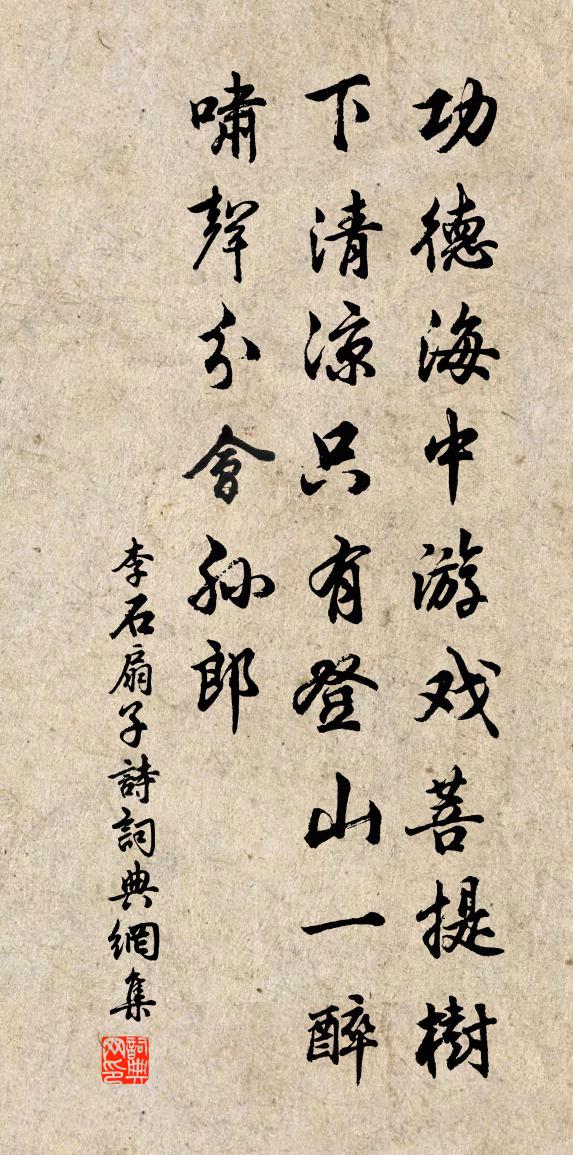 功德海中游戏菩提樹
下清凉只有登山一醉
嘯聲分會孙郎
李石扇子詩詞典網集
詞典網印